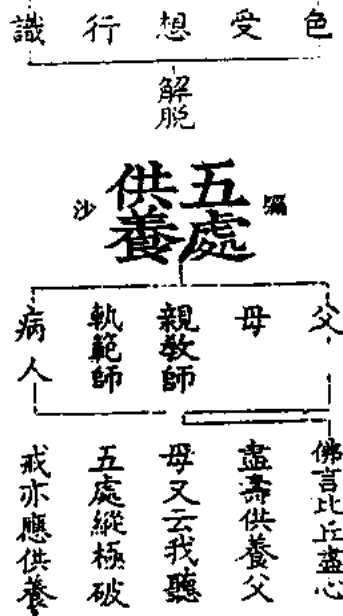 色
受
想
行
識
解脱
彌
五處
供養
沙
父
母
親教師
軌範師
病人
佛言比丘盡心
盡壽供養父
母又云我聽
五處縱極破
戒亦應供養